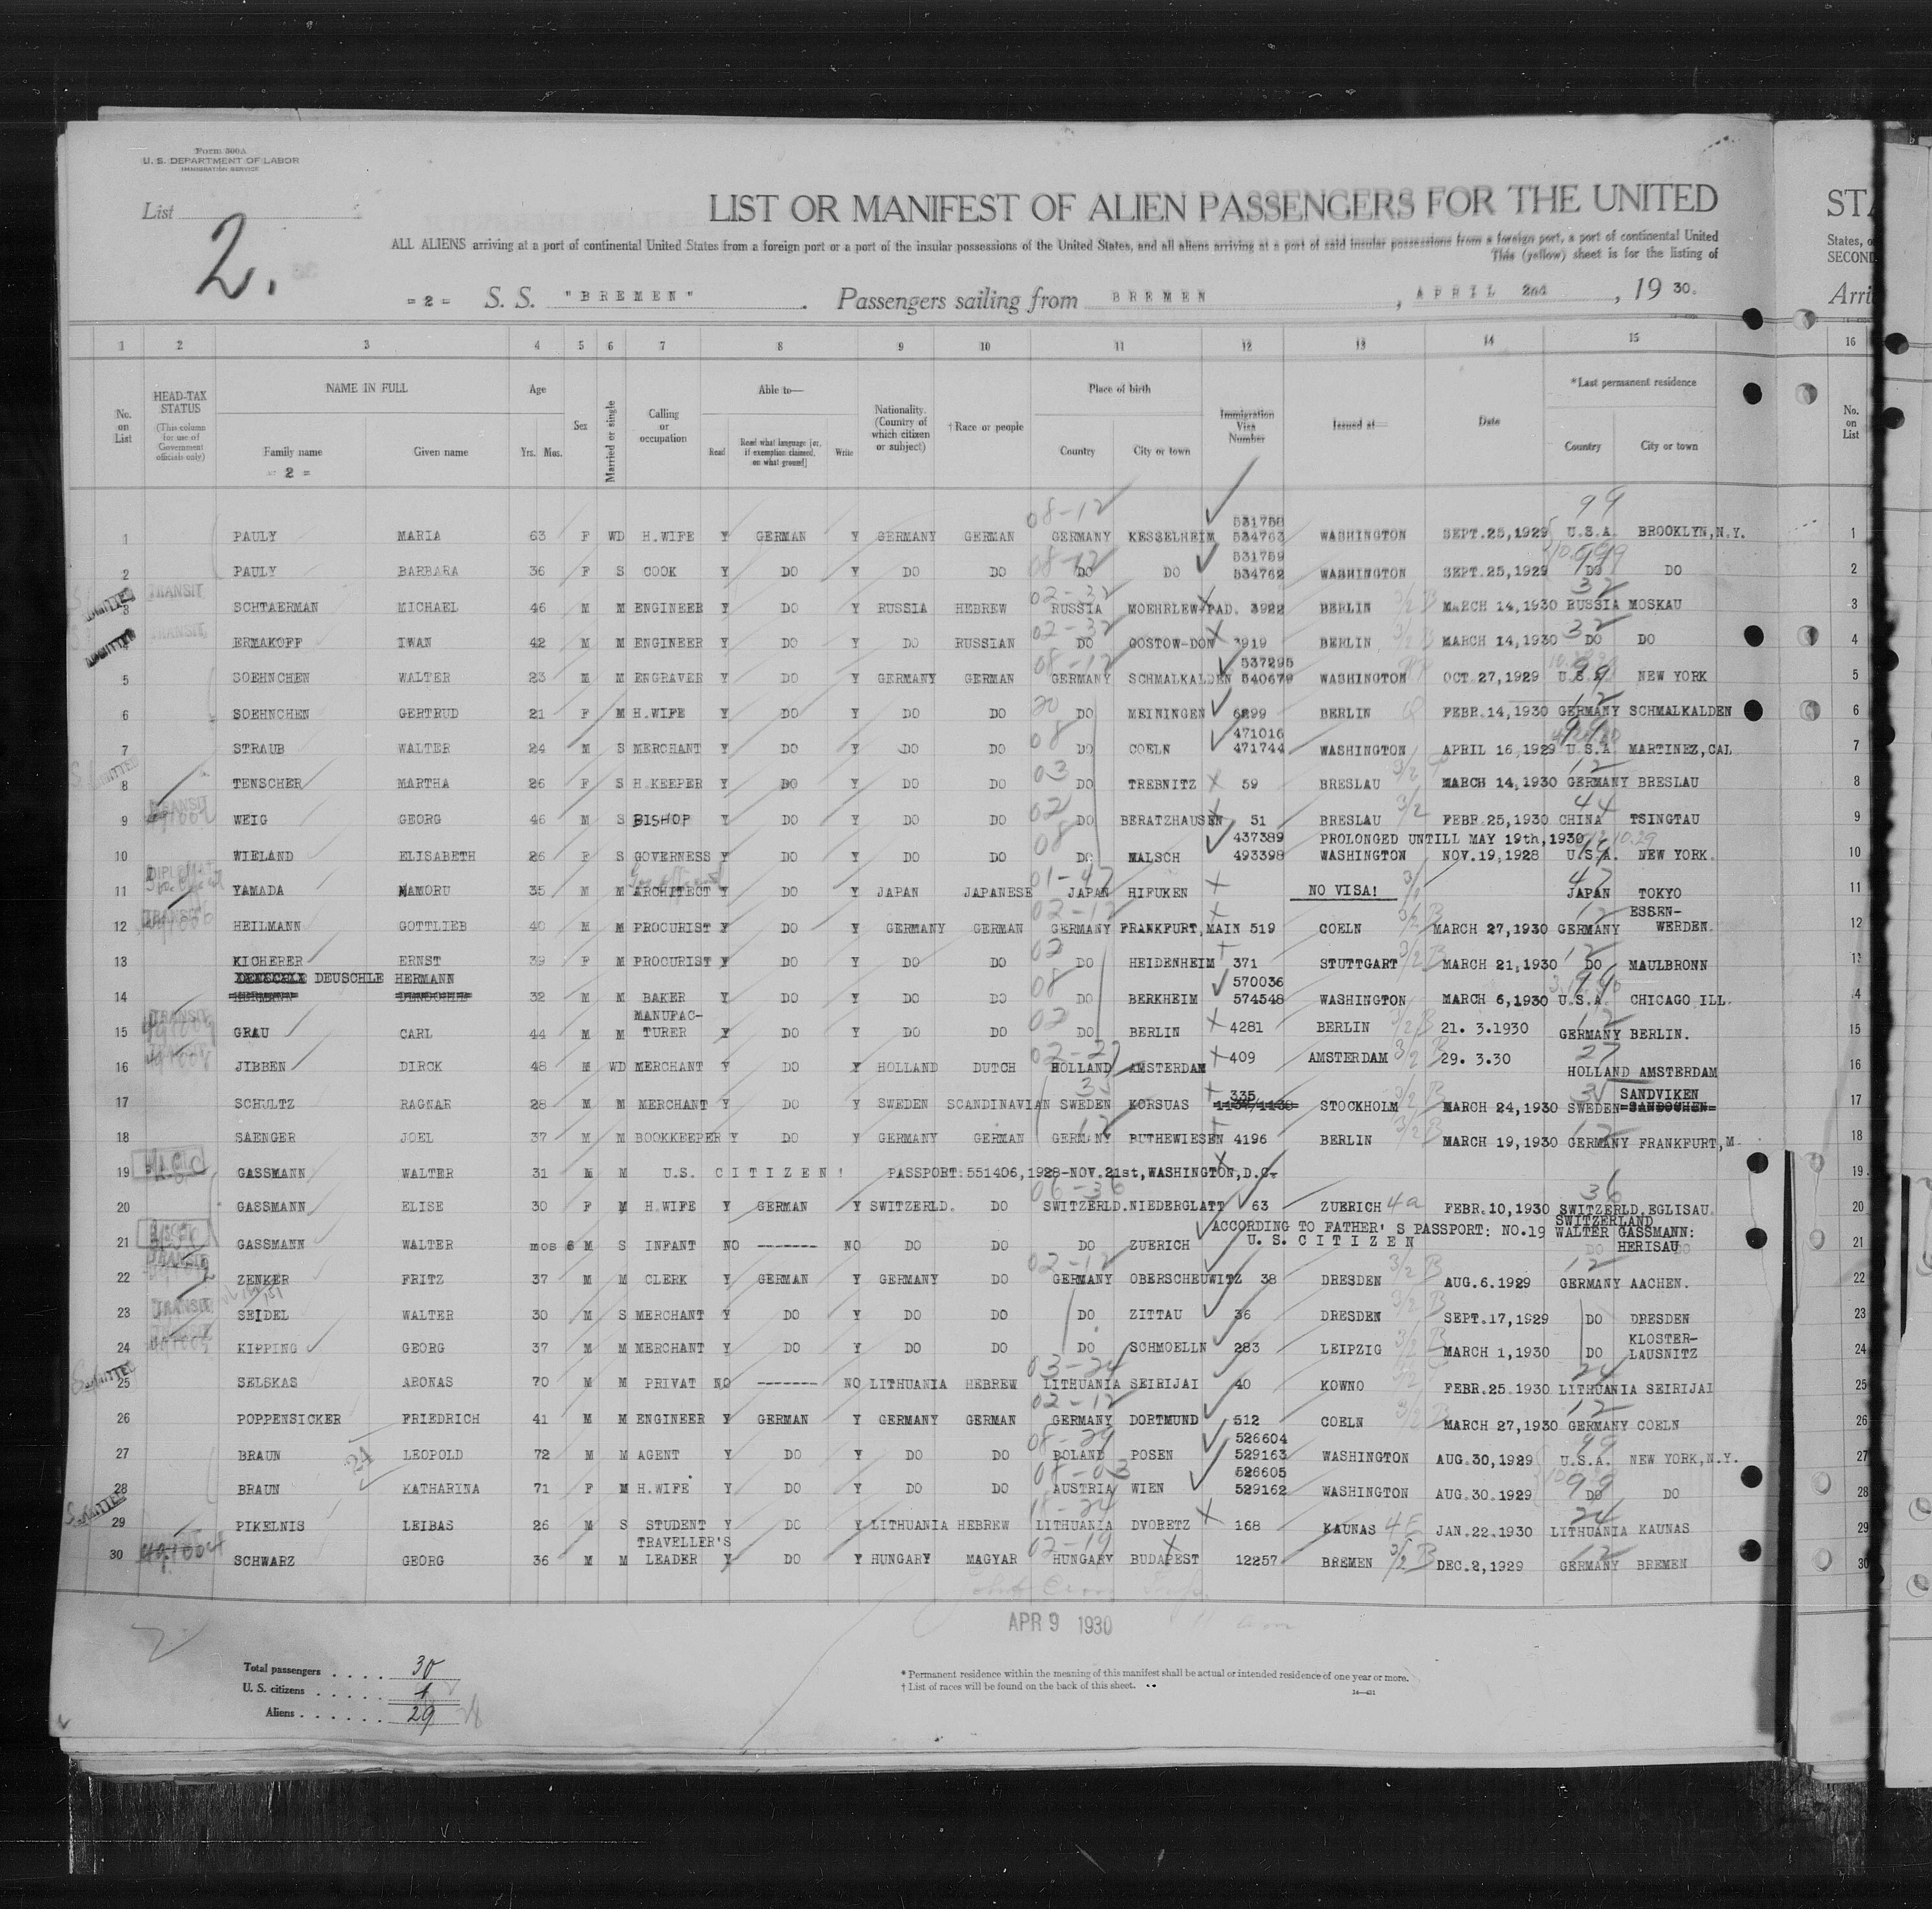 Form 500A
U. S. DEPARTMENT OF LABOR
IMMIGRATION SERVICE
List
2.
LIST OR MANIFEST OF ALIEN PASSENGERS FOR THE UNITED
ALL ALIENS arriving at a port of continental United States from a foreign port or a port of the insular possessions of the United States, and all aliens arriving at a port of said insular possessions from a foreign port, a port of continental United
This (yellow) sheet is for the listing of
= 2 = S. S. "BREMEN" . Passengers sailing from BREMEN , APRIL 2nd , 19 30.
1 2 3 4 5 6 7 8 9 10 11 12 13 14 15 16
No. on List
HEAD-TAX STATUS (This column for use of Government officials only)
NAME IN FULL Family name Given name
= 2 =
Age Yrs. Mos.
Sex
Married or single
Calling or occupation
Able to— Read Read what language [or, if exemption claimed, on what ground] Write
Nationality. (Country of which citizen or subject)
†Race or people
Place of birth Country City or town
Immigration Visa Number
Issued at—
Date
*Last permanent residence Country City or town
No. on List
08-12 99
531758
1 PAULY MARIA 63 F WD H.WIFE Y GERMAN Y GERMANY GERMAN GERMANY KESSELHEIM 534763 WASHINGTON SEPT.25,1929 U.S.A. BROOKLYN,N.Y. 1
08-12 531759 99
2 PAULY BARBARA 36 F S COOK Y DO Y DO DO DO DO 534762 WASHINGTON SEPT.25,1929 DO DO 2
TRANSIT 02-32 32
ADMITTED 3 SCHTAERMAN MICHAEL 46 M M ENGINEER Y DO Y RUSSIA HEBREW RUSSIA MOEHRLEW-PAD. 3922 BERLIN 3/2 B MARCH 14,1930 RUSSIA MOSKAU 3
TRANSIT 02-32 32
ADMITTED 4 ERMAKOFF IWAN 42 M M ENGINEER Y DO Y DO RUSSIAN DO GOSTOW-DON 3919 BERLIN 3/2 B MARCH 14,1930 DO DO 4
08-12 537295 99
5 SOEHNCHEN WALTER 23 M M ENGRAVER Y DO Y GERMANY GERMAN GERMANY SCHMALKALDEN 540679 WASHINGTON OCT.27,1929 U.S.A NEW YORK 5
20 12
6 SOEHNCHEN GERTRUD 21 F M H.WIFE Y DO Y DO DO DO MEININGEN 6299 BERLIN FEBR.14,1930 GERMANY SCHMALKALDEN 6
08 471016 99
7 STRAUB WALTER 24 M S MERCHANT Y DO Y DO DO DO COELN 471744 WASHINGTON APRIL 16,1929 U.S.A MARTINEZ,CAL 7
03 12
8 TENSCHER MARTHA 26 F S H.KEEPER Y DO Y DO DO DO TREBNITZ 59 BRESLAU 3/2 MARCH 14,1930 GERMANY BRESLAU 8
TRANSIT 02 44
9 WEIG GEORG 46 M S BISHOP Y DO Y DO DO DO BERATZHAUSEN 51 BRESLAU 3/2 FEBR.25,1930 CHINA TSINGTAU 9
08 437389 PROLONGED UNTILL MAY 19th,1930
10 WIELAND ELISABETH 26 F S GOVERNESS Y DO Y DO DO DO MALSCH 493398 WASHINGTON NOV.19,1928 U.S.A. NEW YORK. 10
01-47 47
11 YAMADA MAMORU 35 M M ARCHITECT Y DO Y JAPAN JAPANESE JAPAN HIFUKEN NO VISA! JAPAN TOKYO 11
TRANSIT 02-12 12 ESSEN-
12 HEILMANN GOTTLIEB 40 M M PROCURIST Y DO Y GERMANY GERMAN GERMANY FRANKFURT,MAIN 519 COELN 3/2 B MARCH 27,1930 GERMANY WERDEN. 12
02 12
13 KICHERER ERNST 39 F M PROCURIST Y DO Y DO DO DO HEIDENHEIM 371 STUTTGART 3/2 B MARCH 21,1930 DO MAULBRONN 13
DEUSCHLE HERMANN 08 570036 99
14 32 M M BAKER Y DO Y DO DO DO BERKHEIM 574548 WASHINGTON MARCH 6,1930 U.S.A. CHICAGO ILL. 14
TRANSIT MANUFAC- 02 12
15 GRAU CARL 44 M M TURER Y DO Y DO DO DO BERLIN 4281 BERLIN 3/2 B 21. 3.1930 GERMANY BERLIN. 15
TRANSIT 02-27 27
16 JIBBEN DIRCK 48 M WD MERCHANT Y DO Y HOLLAND DUTCH HOLLAND AMSTERDAM 409 AMSTERDAM 3/2 B 29. 3.30 HOLLAND AMSTERDAM 16
35 335 35 SANDVIKEN
17 SCHULTZ RAGNAR 28 M M MERCHANT Y DO Y SWEDEN SCANDINAVIAN SWEDEN KORSUAS STOCKHOLM 3/2 B MARCH 24,1930 SWEDEN 17
12 12
18 SAENGER JOEL 37 M M BOOKKEEPER Y DO Y GERMANY GERMAN GERMANY RUTHEWIESEN 4196 BERLIN 3/2 B MARCH 19,1930 GERMANY FRANKFURT,M 18
19 GASSMANN WALTER 31 M M U.S. CITIZEN! PASSPORT:551406,1928-NOV.21st,WASHINGTON,D.C. 19
06-36 36
20 GASSMANN ELISE 30 F M H.WIFE Y GERMAN Y SWITZERLD. DO SWITZERLD.NIEDERGLATT 63 ZUERICH 4a FEBR.10,1930 SWITZERLD.EGLISAU. 20
SWITZERLAND
ACCORDING TO FATHER'S PASSPORT: NO.19 WALTER GASSMANN:
21 GASSMANN WALTER mos 6 M S INFANT NO ------- NO DO DO DO ZUERICH U.S. CITIZEN DO HERISAU 21
TRANSIT 02-12 12
22 ZENKER FRITZ 37 M M CLERK Y GERMAN Y GERMANY DO GERMANY OBERSCHEUWITZ 38 DRESDEN 3/2 B AUG.6.1929 GERMANY AACHEN. 22
TRANSIT
23 SEIDEL WALTER 30 M S MERCHANT Y DO Y DO DO DO ZITTAU 36 DRESDEN 3/2 B SEPT.17,1929 DO DRESDEN 23
KLOSTER-
24 KIPPING GEORG 37 M M MERCHANT Y DO Y DO DO DO SCHMOELLN 283 LEIPZIG 3/2 B MARCH 1,1930 DO LAUSNITZ 24
03-24 24
25 SELSKAS ARONAS 70 M M PRIVAT NO ------- NO LITHUANIA HEBREW LITHUANIA SEIRIJAI 40 KOWNO FEBR.25.1930 LITHUANIA SEIRIJAI 25
02-12 12
26 POPPENSICKER FRIEDRICH 41 M M ENGINEER Y GERMAN Y GERMANY GERMAN GERMANY DORTMUND 512 COELN 3/2 B MARCH 27,1930 GERMANY COELN 26
08-29 526604 99
27 BRAUN LEOPOLD 72 M M AGENT Y DO Y DO DO POLAND POSEN 529163 WASHINGTON AUG.30,1929 U.S.A. NEW YORK,N.Y. 27
08-03 526605 99
28 BRAUN KATHARINA 71 F M H.WIFE Y DO Y DO DO AUSTRIA WIEN 529162 WASHINGTON AUG.30.1929 DO DO 28
18-24 24
29 PIKELNIS LEIBAS 26 M S STUDENT Y DO Y LITHUANIA HEBREW LITHUANIA DVORETZ 168 KAUNAS 4E JAN.22.1930 LITHUANIA KAUNAS 29
TRANSIT TRAVELLER'S 02-19 12
30 SCHWARZ GEORG 36 M M LEADER Y DO Y HUNGARY MAGYAR HUNGARY BUDAPEST 12257 BREMEN 3/2 B DEC.2,1929 GERMANY BREMEN 30
APR 9 1930
Total passengers . . . . 30
U. S. citizens . . . . . 1
Aliens . . . . . . 29
* Permanent residence within the meaning of this manifest shall be actual or intended residence of one year or more.
† List of races will be found on the back of this sheet.
STA
States, o
SECOND
Arri